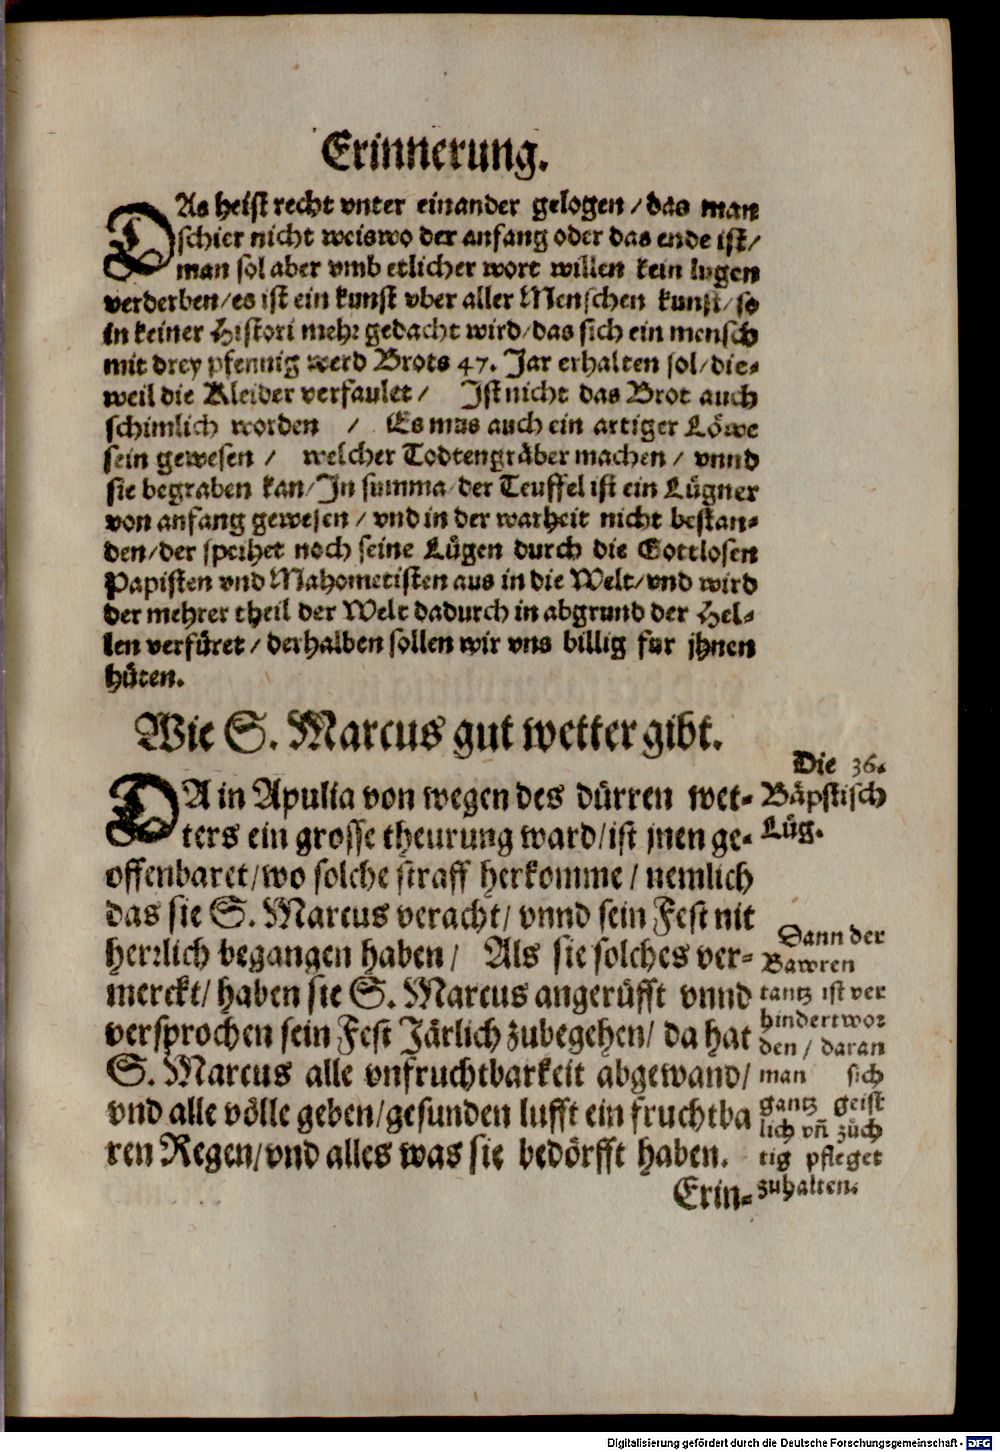 Erinnerung.
DAs heist recht vnter einander gelogen / das man
schier nicht weis wo der anfang oder das ende ist /
man sol aber vmb etlicher wort willen kein lugen
verderben / es ist ein kunst vber aller Menschen kunst / so
in keiner Histori mehr gedacht wird / das sich ein mensch
mit drey pfennig werd Brots 47. Jar erhalten sol / die-
weil die Kleider verfaulet / Ist nicht das Brot auch
schimlich worden / Es mus auch ein artiger Löwe
sein gewesen / welcher Todtengräber machen / vnnd
sie begraben kan / In summa der Teuffel ist ein Lügner
von anfang gewesen / vnd in der warheit nicht bestan-
den / der speihet noch seine Lügen durch die Gottlosen
Papisten vnd Mahometisten aus in die Welt / vnd wird
der mehrer theil der Welt dadurch in abgrund der Hel-
len verfüret / derhalben sollen wir vns billig fur jhnen
hüten.
Wie S. Marcus gut wetter gibt.
DA in Apulia von wegen des dürren wet-
ters ein grosse theurung ward / ist jnen ge-
offenbaret / wo solche straff herkomme / nemlich
das sie S. Marcus veracht / vnnd sein Fest nit
herrlich begangen haben / Als sie solches ver-
merckt / haben sie S. Marcus angerüfft vnnd
versprochen sein Fest Järlich zubegehen / da hat
S. Marcus alle vnfruchtbarkeit abgewand /
vnd alle völle geben / gesunden lufft ein fruchtba
ren Regen / vnd alles was sie bedörfft haben.
Erin-
Die 36.
Bäpstisch
Lüg.
Dann der
Bawren
tantz ist ver
hindert wor
den / daran
man sich
gantz geist
lich vñ züch
tig pfleget
zuhalten.
Digitalisierung gefördert durch die Deutsche Forschungsgemeinschaft - DFG